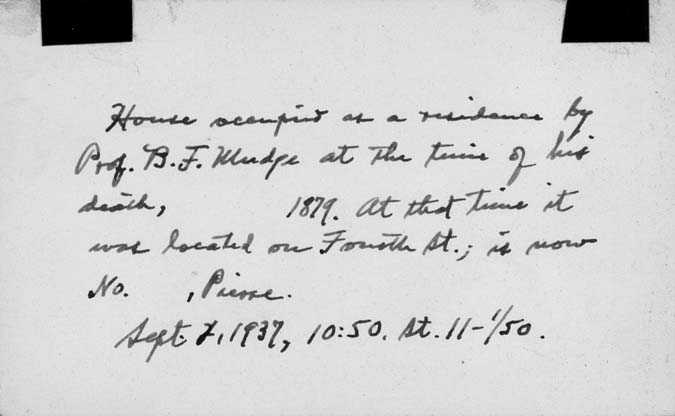 House occupied as a residence by
Prof. B. F. Mudge at the time of his
death, 1879. At that time it
was located on Fourth St.; is now
No. , Pierre.
Sept. 7, 1937, 10:50. St. 11-1/50.